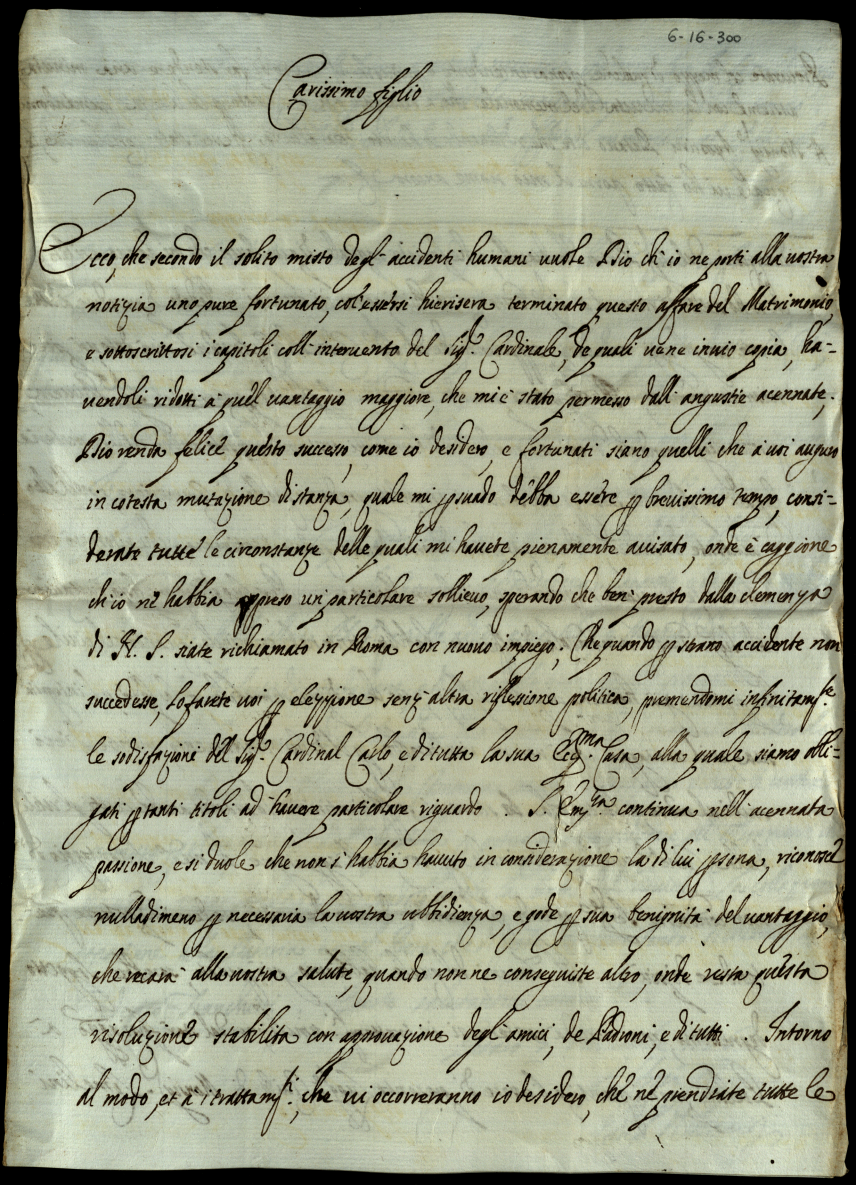 6-16-300
Carissimo figlio
Ecco, che secondo il solito misto degl'accidenti humani vuole Dio ch'io ne porti alla vostra
notizia uno pure fortunato, col'essersi hierisera terminato questo affare del Matrimonio,
e sottoscrittosi i capitoli coll'intervento del Sigr. Cardinale, de quali ve ne invio copia, ha-
vendoli ridotti à quel vantaggio maggiore, che mi è stato permesso dall'angustie acennate.
Dio renda felice questo successo, come io desidero, e fortunati siano quelli che à voi auguro
in cotesta mutazione di stanza, quale mi psuado debba essere p brevissimo tempo, consi-
derate tutte le circonstanze delle quali mi havete pienamente avisato, onde è caggione
ch'io nè habbia appreso un particolare sollievo, sperando che ben presto dalla clemenza
di N. S. siate richiamato in Roma con nuovo impiego; Che quando p strano accidente non
succedesse, lo farete voi p elezzione senz'altra riflessione politica, premendomi infinitamte.
le sodisfazioni del Sigr. Cardinal Carlo, e di tutta la sua Eccma. Casa, alla quale siamo obli-
gati p tanti titoli ad havere particolare riguardo. S. Emza. continua nell'acennata
passione, e si duole che non s'habbia havuto in considerazione la di lui psona, riconosce
nulladimeno p necessaria la vostra ubbidienza, e gode p sua benignità del vantaggio,
che recarà alla vostra salute, quando non ne conseguiste altro, onde resta questa
risoluzione stabilita con approvazione degl'amici, de Padroni, e di tutti. Intorno
al modo, et à i trattamti., che vi occorreranno io desidero, che nè prendiate tutte le